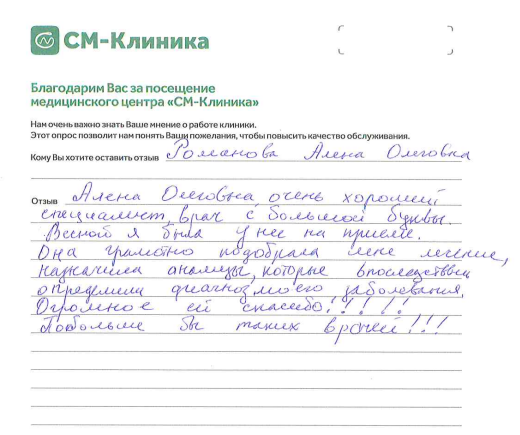 СМ-Клиника
Благодарим Вас за посещение
медицинского центра «СМ-Клиника»
Нам очень важно знать Ваше мнение о работе клиники.
Этот опрос позволит нам понять Ваши пожелания, чтобы повысить качество обслуживания.
Кому Вы хотите оставить отзыв Романова Алена Олеговна
Отзыв Алена Олеговна, очень хороший
специалист, врач с большой буквы.
Весной я была у нее на приеме.
Она грамотно подобрала мне лечение,
назначила анализы, которые впоследствии
определили диагноз моего заболевания.
Огромное ей спасибо!!!!!
Побольше бы таких врачей!!!